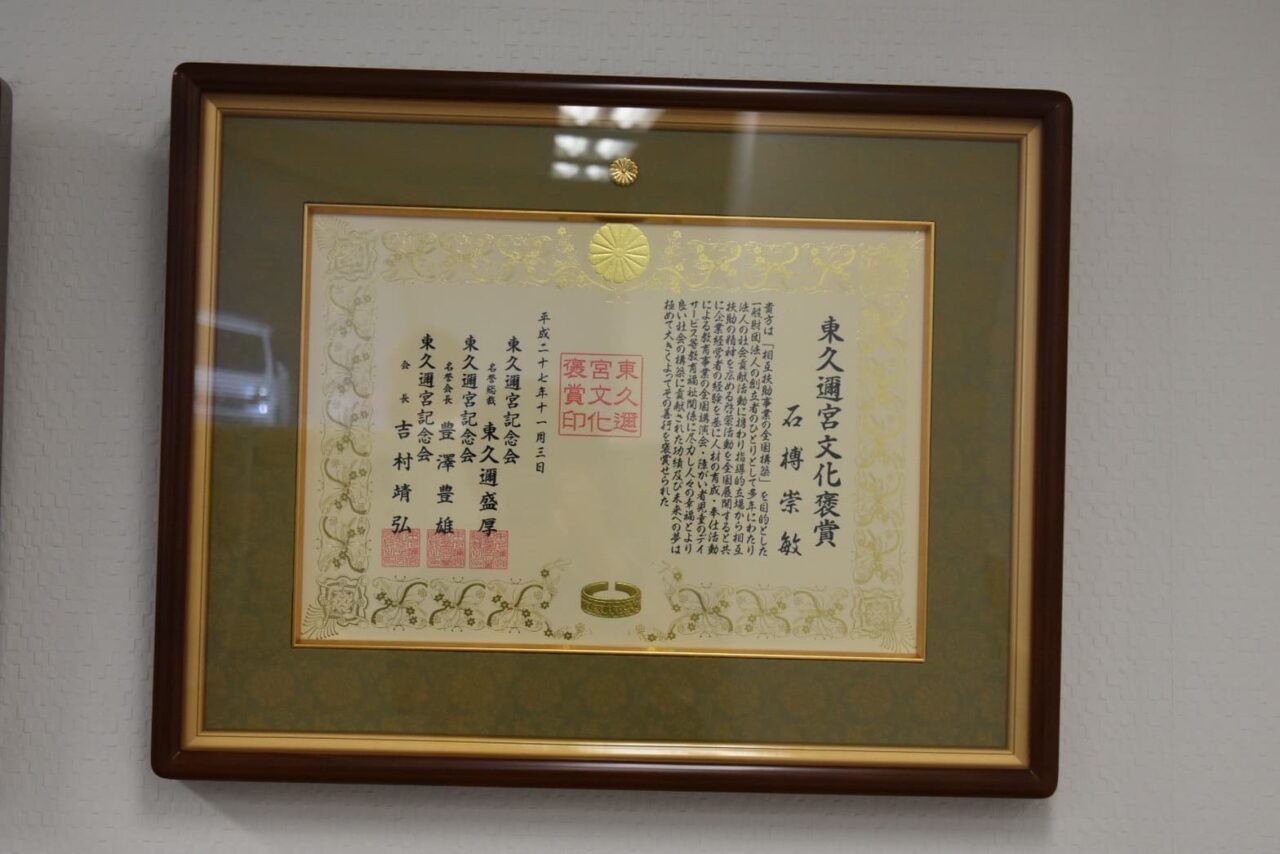 東久邇宮文化褒賞
石榑崇敏
貴方は「相互扶助事業の全国構築」を目的とした
一般財団法人の創立者のひとりとして多年にわたり
法人の社会貢献活動に携わり指導的立場から相互
扶助の精神を広める啓蒙活動を全国展開すると共
に企業経営者の経験を基に人材の育成・奉仕活動
による教育事業の全国講演会・障がい者児童のデイ
サービス等教育福祉関係に尽力し人々の幸福とより
良い社会の構築に貢献された功績及び未来への夢は
極めて大きくよってその善行を褒賞せられた
東久邇
宮文化
褒賞印
平成二十七年十一月三日
東久邇宮記念会
名誉総裁 東久邇盛厚
東久邇宮記念会
名誉会長 豊澤豊雄
東久邇宮記念会
会長 吉村靖弘